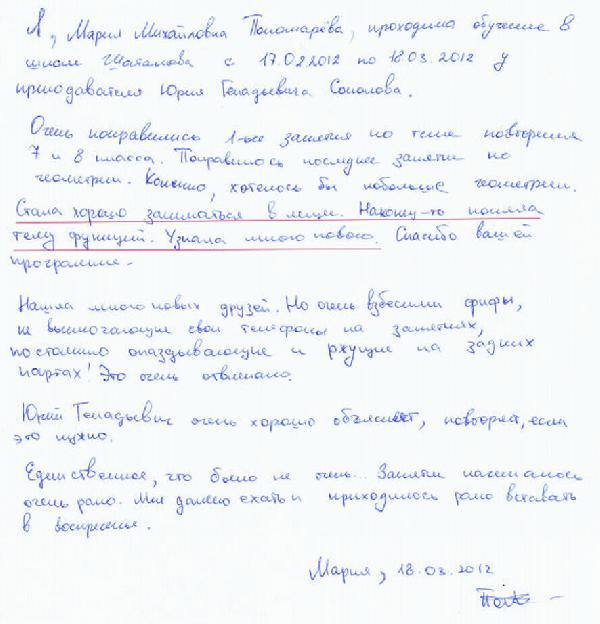 Я, Мария Михайловна Пономарёва, проходила обучение в
школе Шаталова с 17.02.2012 по 18.03.2012 у
преподавателя Юрия Генадьевича Соколова.
Очень понравились 1-ые занятия по теме повторения
7 и 8 класса. Понравилось последнее занятие по
геометрии. Конечно, хотелось бы побольше геометрии.
Стала хорошо заниматься в лицее. Наконец-то поняла
тему функций. Узнала много нового. Спасибо вашей
программе.
Нашла много новых друзей. Но очень взбесили фифы,
не выключающие свои телефоны на занятиях,
постоянно опаздывающие и ржущие на задних
партах! Это очень отвлекало.
Юрий Генадьевич очень хорошо объясняет, повторяет, если
это нужно.
Единственное, что было не очень... Занятия начинались
очень рано. Мне далеко ехать и приходилось рано вставать
в воскресенье.
Мария, 18.03.2012